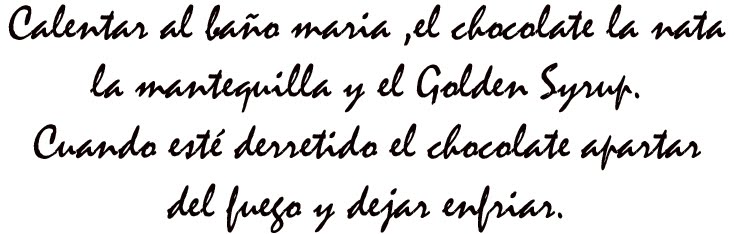 Calentar al baño maria ,el chocolate la nata
la mantequilla y el Golden Syrup.
Cuando esté derretido el chocolate apartar
del fuego y dejar enfriar.